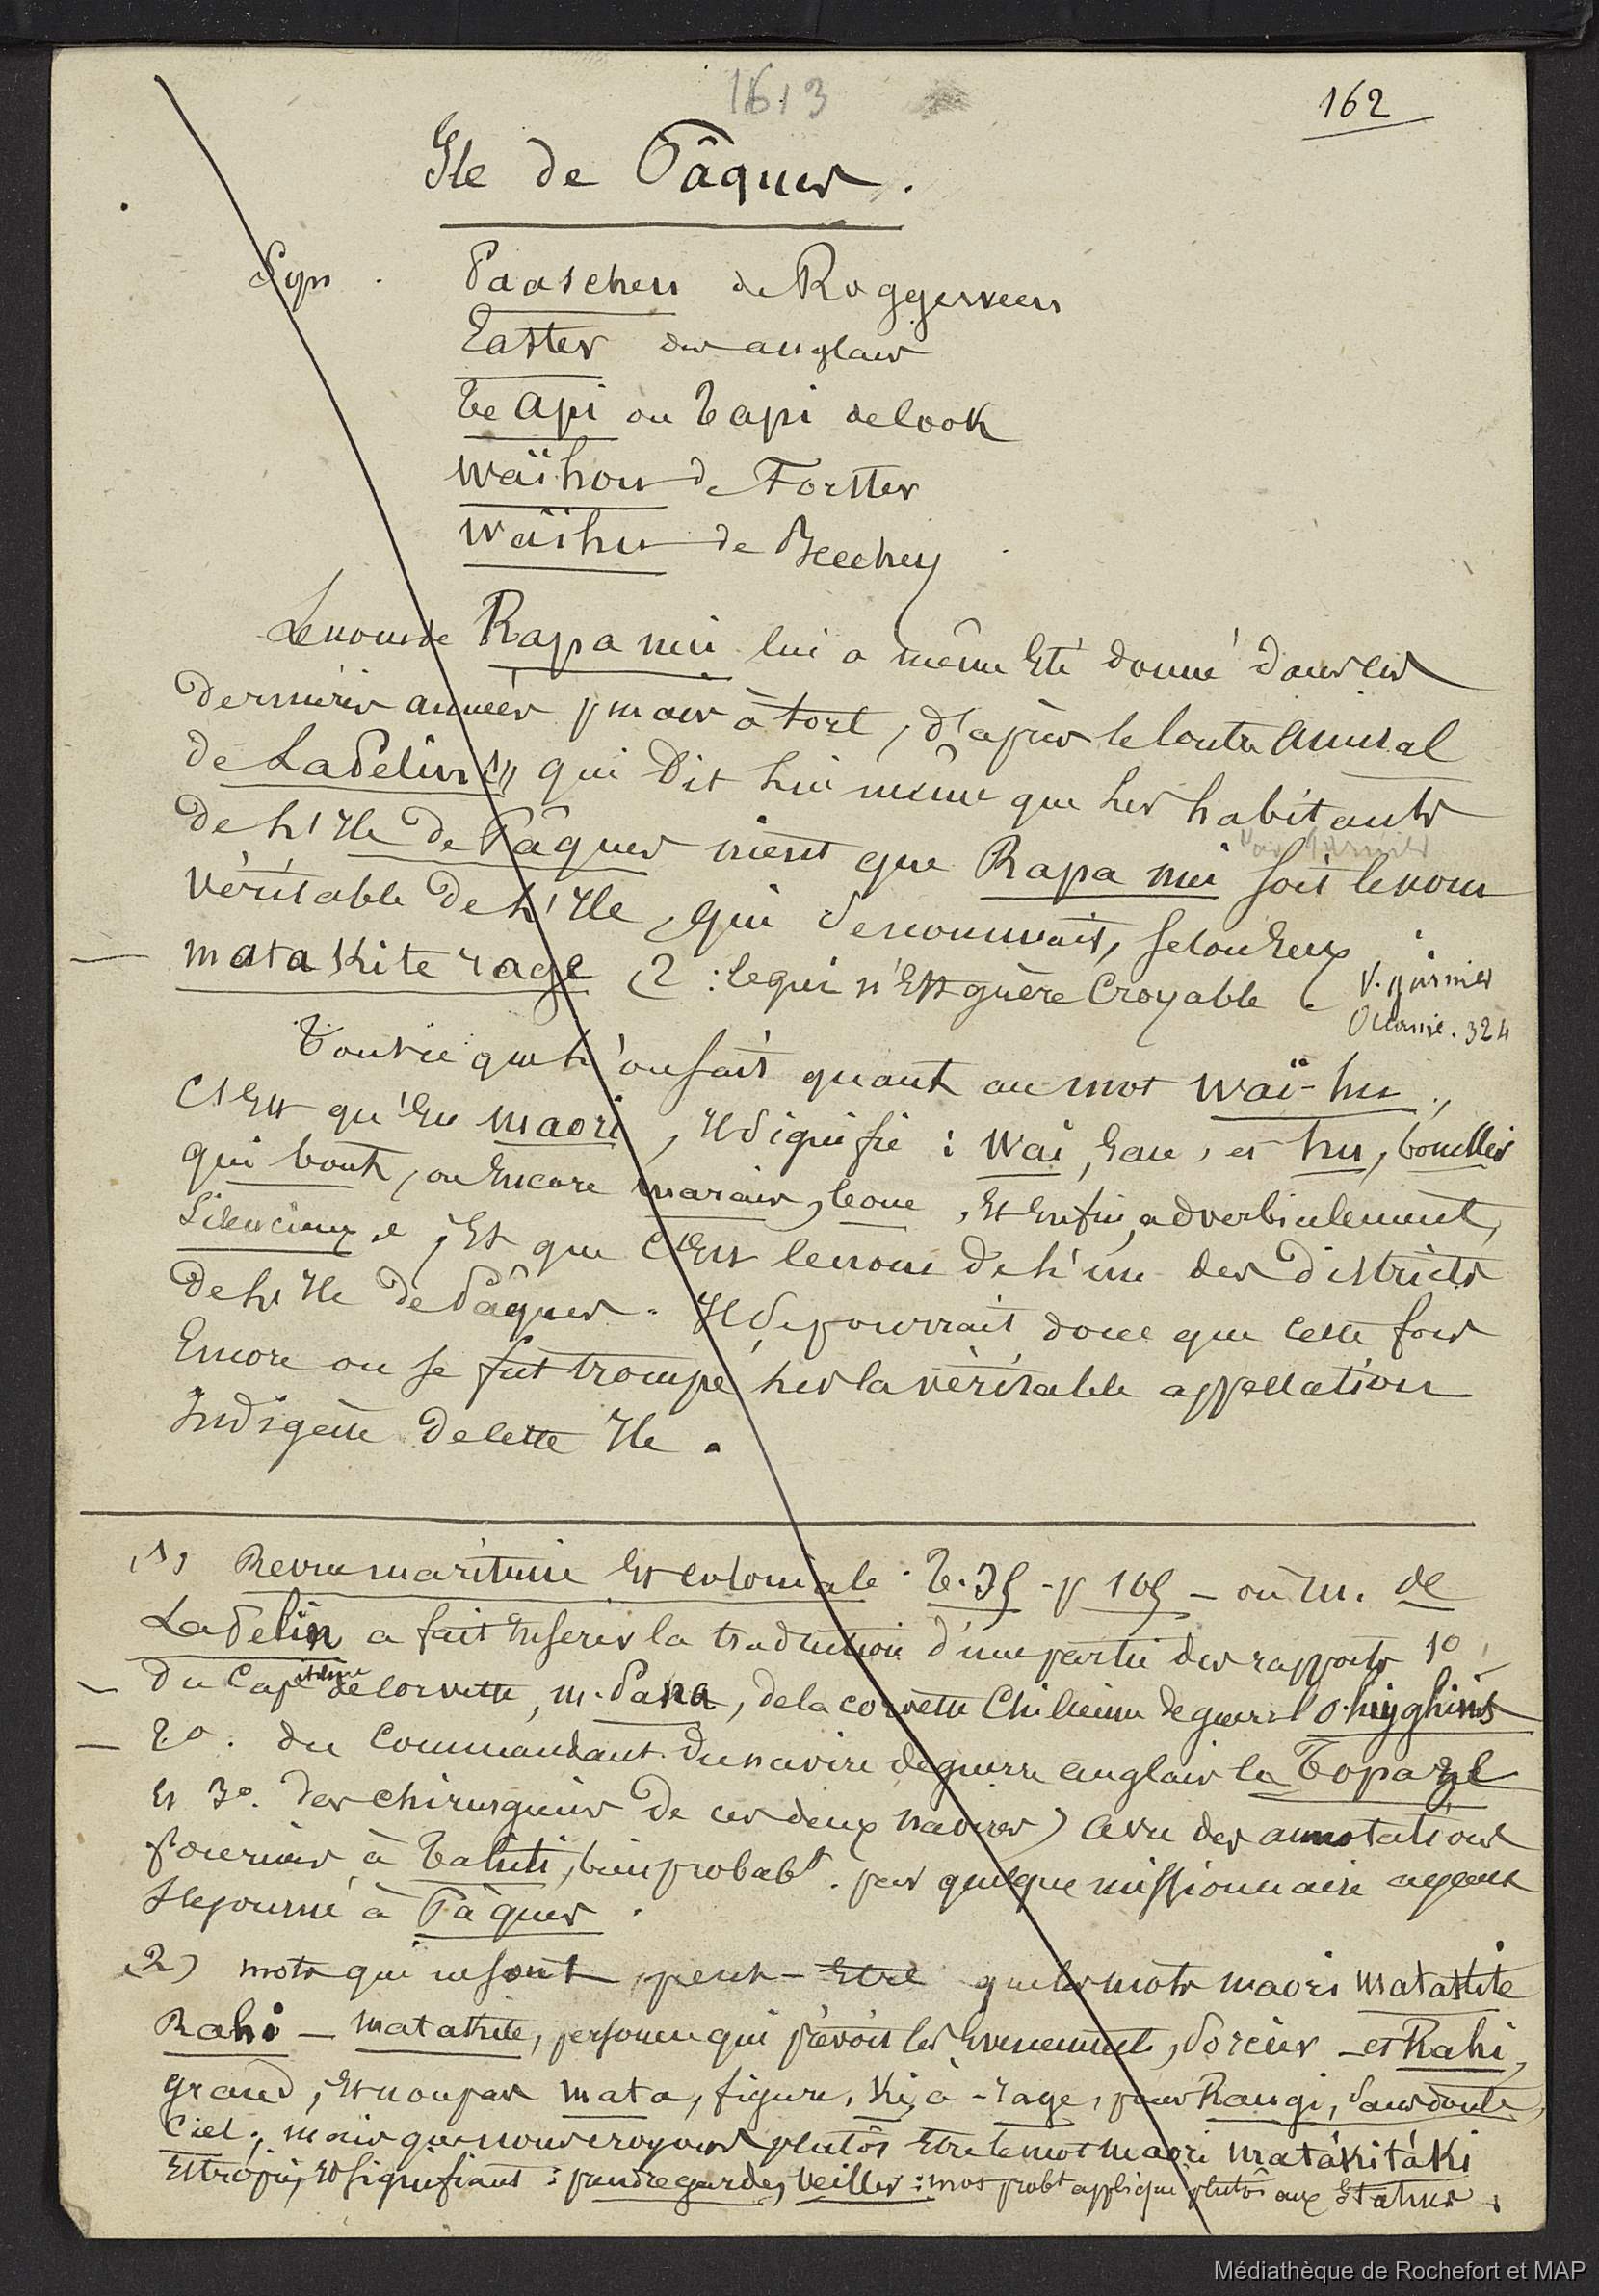 1613
162
Ile de Pâques.
Syn. Paaschen de Roggeween
Easter des anglais
Te api ou Tapi de Cook
Waïhou de Forster
Waïhu de Beechey
Le nom de Rapa nui lui a même été donné dans les
dernières années, mais à tort, d'après le Contre Amiral
de Lapelin (1) qui dit lui même que les habitants
de l'Ile de Pâques nient que Rapa nui soit le nom
véritable de l'Ile, qui se nommait, selon eux
mata Kite rage (2 : ce qui n'est guère Croyable (
V. Garnier
Océanie. 324
Tout ce que l'on sait quant au mot Waï-hu,
C'est qu'en maori, Il signifie : Wai, Eau, et hu, bouillir
qui bout, ou Encore marais, boue, Et enfin, adverbialement,
Silencieux.e, Et que C'est le nom de l'un des districts
de l'Ile de Pâques. Il se pourrait donc que cette fois
Encore on se fut trompé sur la véritable appellation
Indigène de cette Ile.
(1) Revue maritime Et coloniale T. 35 - p 105 - où M. de
Lapelin a fait Insérer la traduction d'une partie des rapports 1o
du Capitaine de Corvette, M. Gana, de la corvette Chilienne de guerre l'O.higghins
2o. du Commandant du navire de guerre anglais la Topaze
Et 3o. des chirurgiens de ces deux navires) avec des annotations
fournies à Tahiti, bien probabt. par quelque missionnaire ayant
Séjourné à Pâques.
(2) mots qui ne sont peut-Etre que les mots maori matakite
Rahi - matakite, personne qui prévoit les Evenements, Sorcier - et Rahi,
grand, Et non pas mata, figure, Ki, à - rage, pour Rangi, Sans doute,
Ciel ; mais que nous croyons plutôt Etre le mot maori matákitáki
Estropié, Et signifiant : prendre garde, Veiller : mot probt appliqué plutôt aux Statues.
Médiathèque de Rochefort et MAP